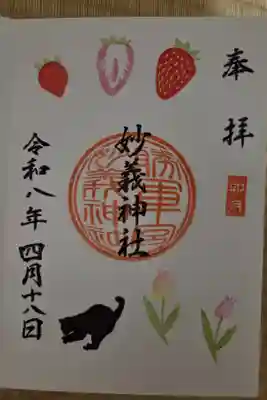 奉拝
卯月
妙義神社
令和八年四月十八日